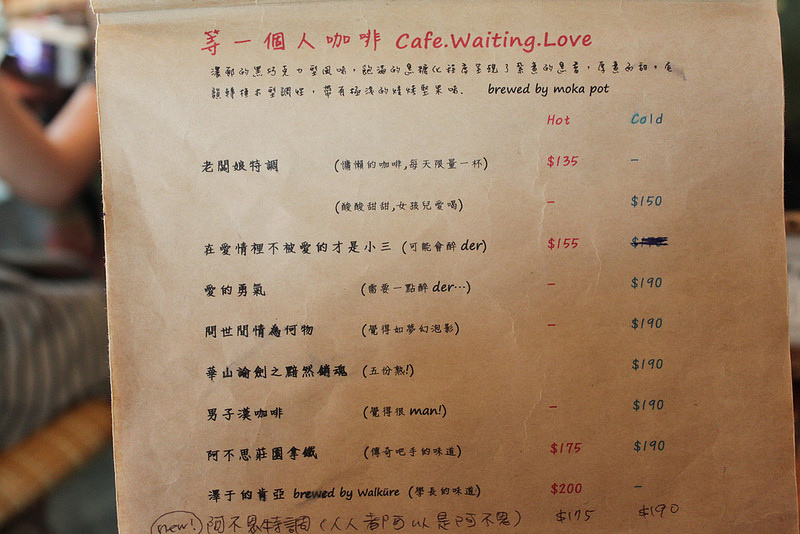 等一個人咖啡 Cafe.Waiting.Love
濃郁的黑巧克力型風味,飽滿的焦糖化程度呈現了紮實的焦香,厚實而甜,尾
韻轉檀木型調性,帶有極淺的燒烤堅果味. brewed by moka pot
Hot Cold
老闆娘特調 (慵懶的咖啡,每天限量一杯) $135 –
(酸酸甜甜,女孩兒愛喝) – $150
在愛情裡不被愛的才是小三 (可能會醉 der) $155
愛的勇氣 (需要一點醉 der…) – $190
問世間情為何物 (覺得如夢幻泡影) – $190
華山論劍之黯然銷魂 (五份熟!) $190
男子漢咖啡 (覺得很 man!) – $190
阿不思莊園拿鐵 (傳奇吧手的味道) $175 $190
澤于的肯亞 brewed by Walküre (學長的味道) $200 –
new! 阿不思特調 (人人都可以是阿不思) $175 $190